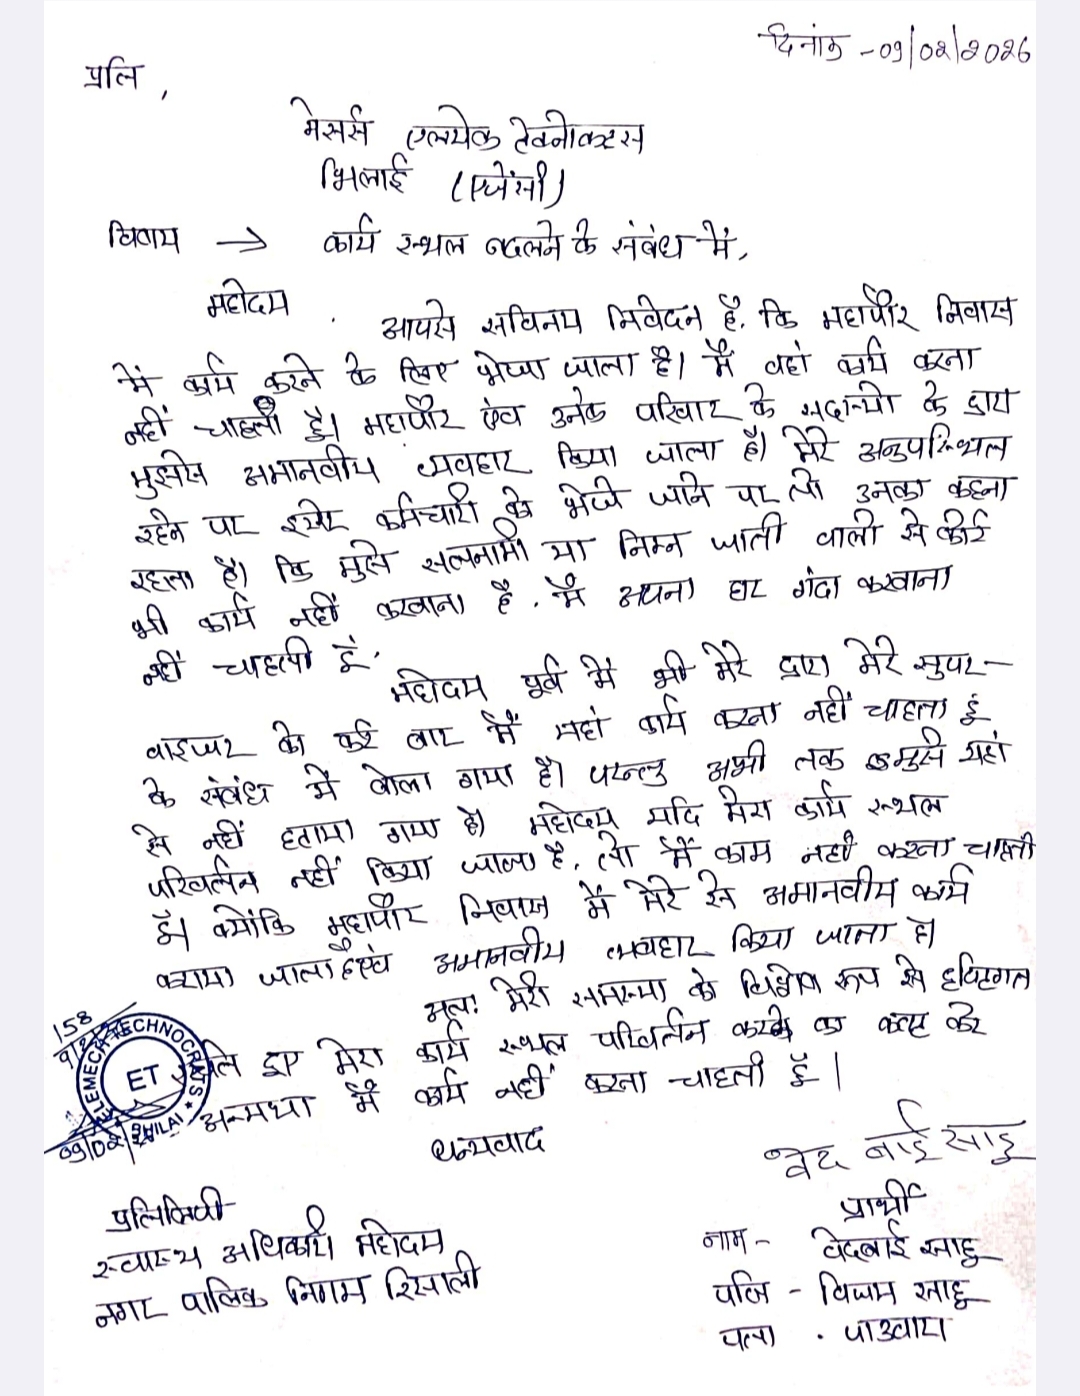 दिनांक -09/02/2026
प्रति,
मेसर्स एलमेक टेक्नोक्रट्स
भिलाई (एजेंसी)
विषय → कार्य स्थल बदलने के संबंध में,
महोदय,
आपसे सविनय निवेदन है, कि महापौर निवास
में कार्य करने के लिए भेजा जाता है। मैं वहां कार्य करना
नहीं चाहती हूँ। महापौर एंव उनके परिवार के सदस्यो के द्वारा
मुझसे अमानवीय व्यवहार किया जाता है। मेरे अनुपस्थित
रहने पर कर्मचारी को भेजे जाने पर तो उनका कहना
रहता है। कि मुझे सतनामी या निम्न जाती वालो से कोई
भी कार्य नहीं करवाना है, मैं अपना घर गंदा करवाना
नहीं चाहती हूं.
महोदय पूर्व में भी मेरे द्वारा मेरे सुपर-
वाइजर को कई बार मैं यहां कार्य करना नहीं चाहता हूं
के संबंध में बोला गया है। परन्तु अभी तक मुझे यहां
से नहीं हटाया गया है। महोदय यदि मेरा कार्य स्थल
परिवर्तन नहीं किया जाता है, तो मैं काम नहीं करना चाहती
हूँ। क्योंकि महापौर निवास में मेरे से अमानवीय कार्य
कराया जाता है एवं अमानवीय व्यवहार किया जाता है।
अतः मेरी समस्या को विशेष रूप से दृष्टिगत
हुए मेरा कार्य स्थल परिवर्तन करने का कष्ट करे
अन्यथा मैं कार्य नहीं करना चाहती हूँ।
158
ELEMECH TECHNOCRATS
ET
BHILAI ★
09/02/
धन्यवाद
वेद बाई साहू
प्रार्थी
नाम - वेदबाई साहू
पति - विजय साहू
पता .
प्रतिलिपी
स्वास्थ्य अधिकारी महोदय
नगर पालिक निगम रिसाली